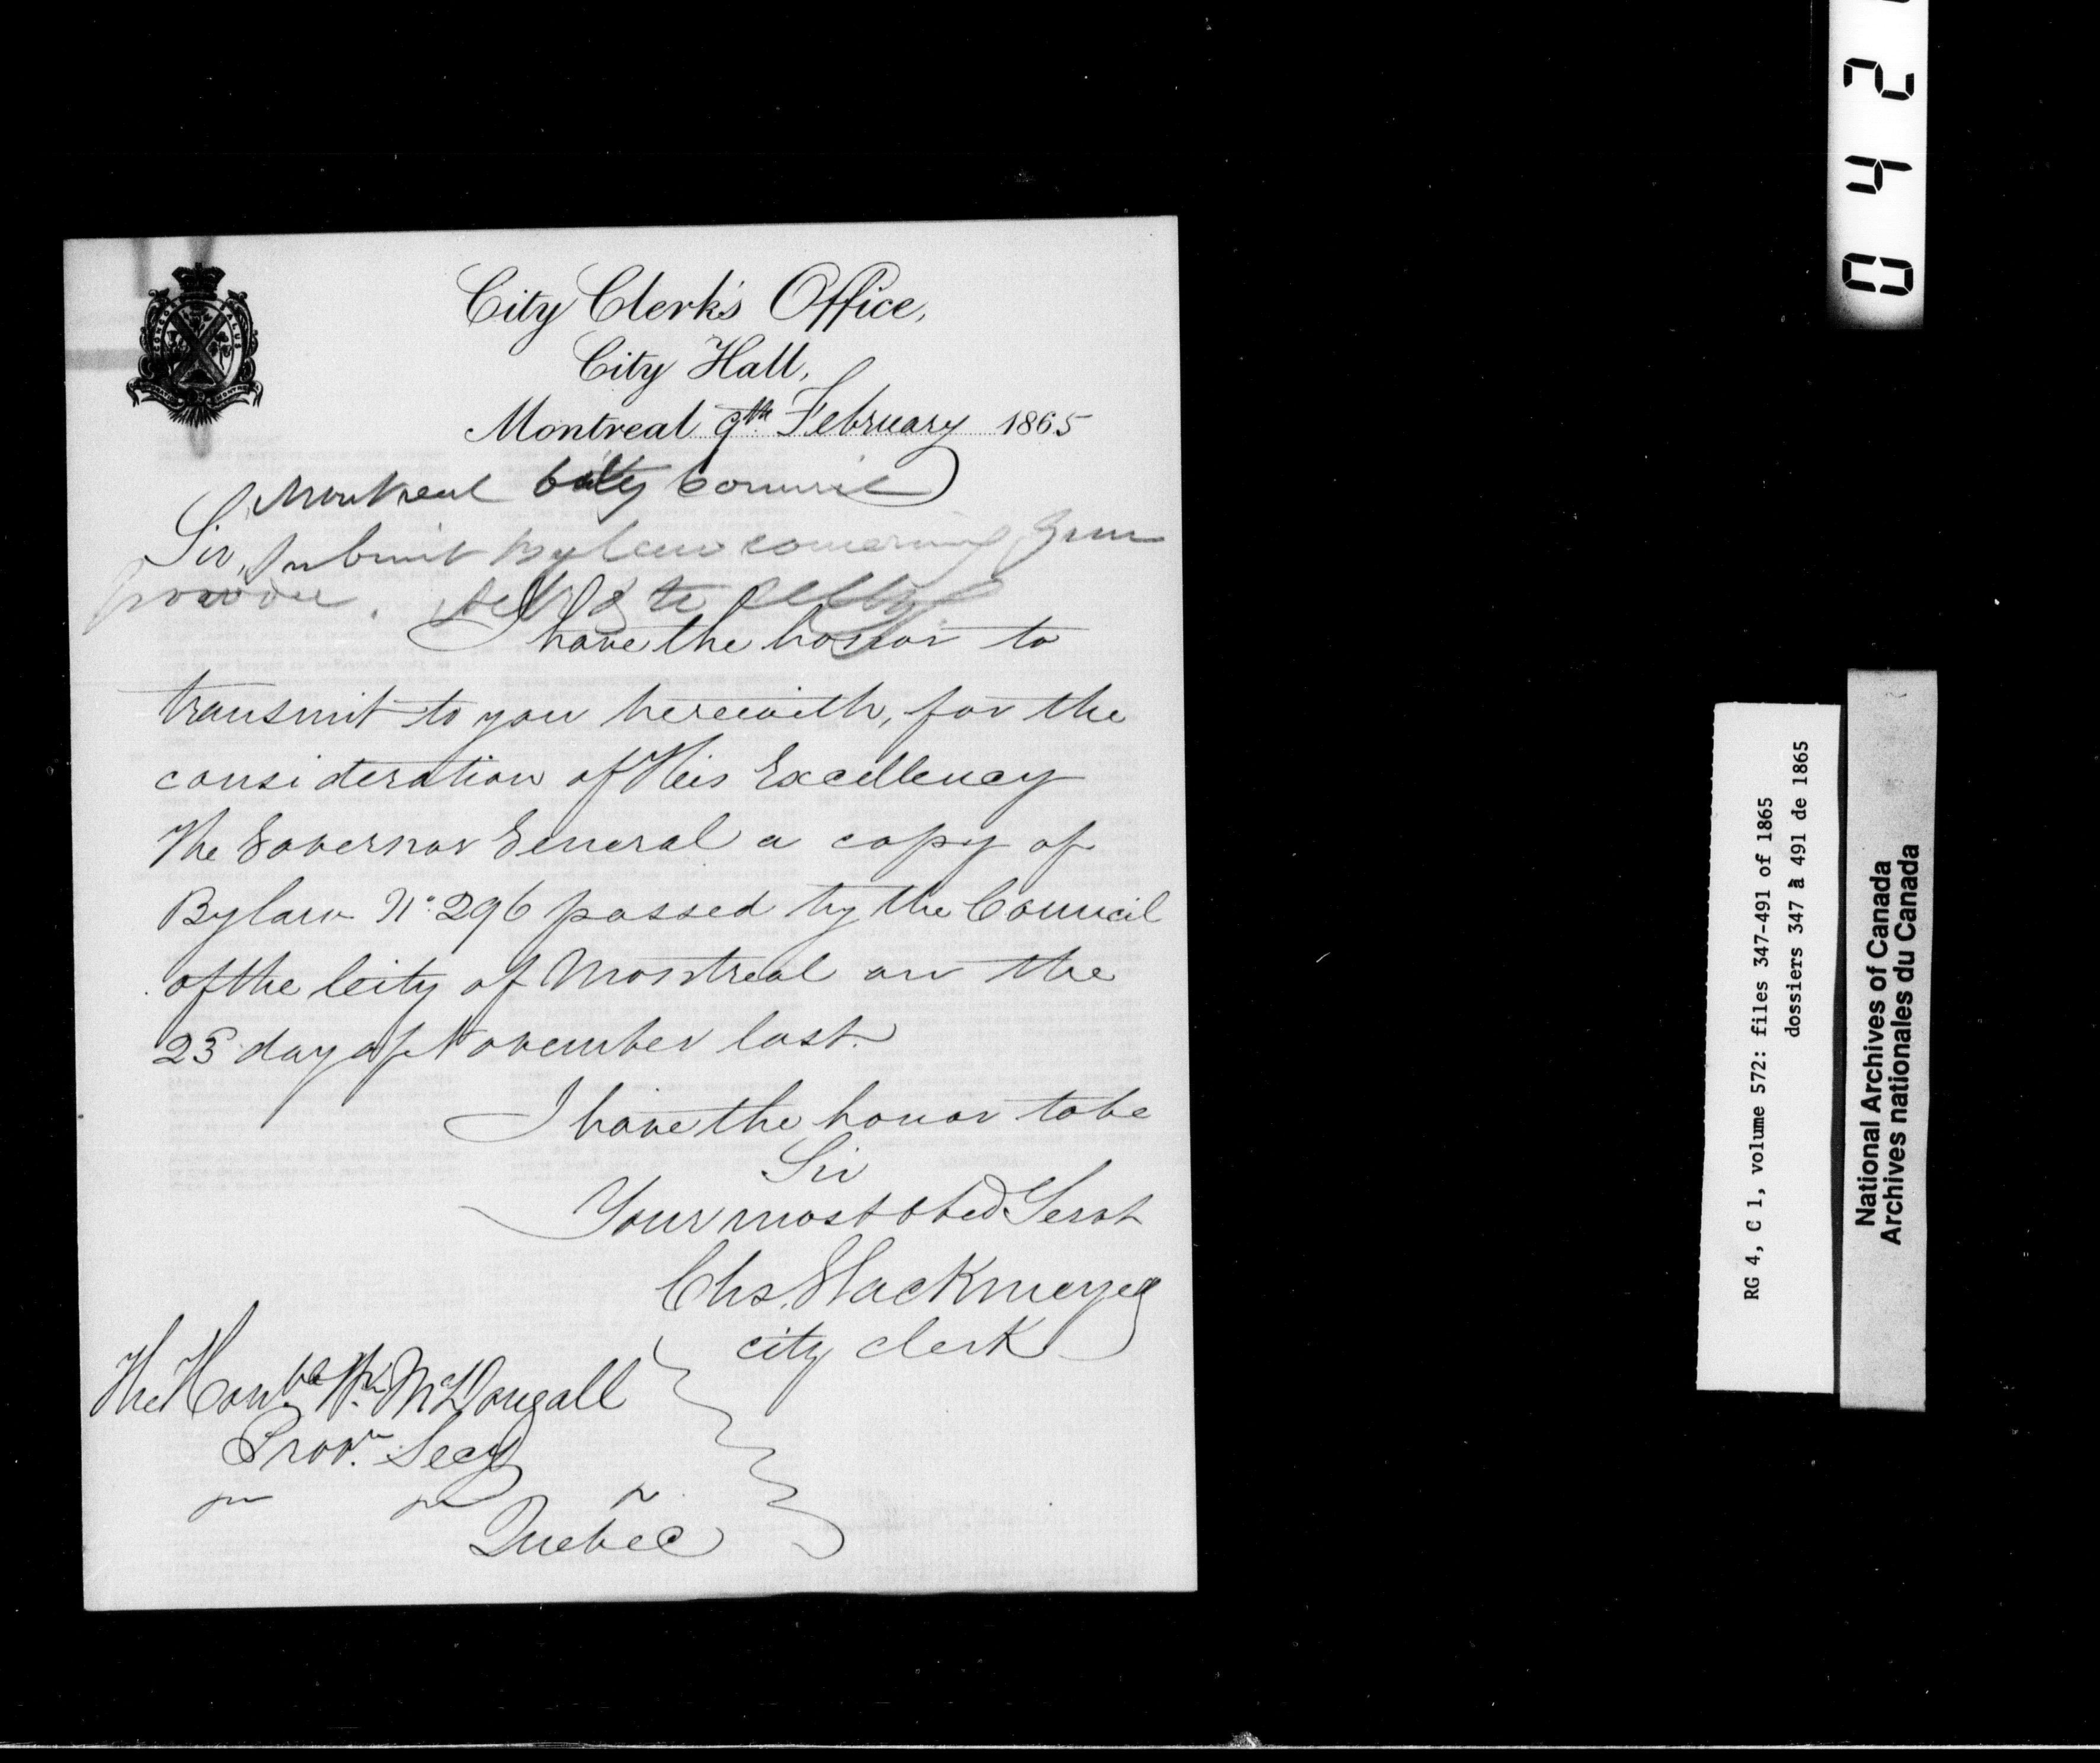 City Clerk's Office,
City Hall,
Montreal 9th February 1865
Montreal City Council
Sir, Submit Bylaw concerning Gun
powder.
I have the honor to
transmit to you herewith, for the
consideration of His Excellency
The Governor General a copy of
Bylaw No. 296 passed by the Council
of the City of Montreal on the
23 day of November last.
I have the honor to be
Sir
Your most obed Servt
Chs. Glackmeyer
city clerk
The Honble Wm McDougall
Provn Secy
Quebec
042
RG 4, C 1, volume 572: files 347-491 of 1865
dossiers 347 à 491 de 1865
National Archives of Canada
Archives nationales du Canada